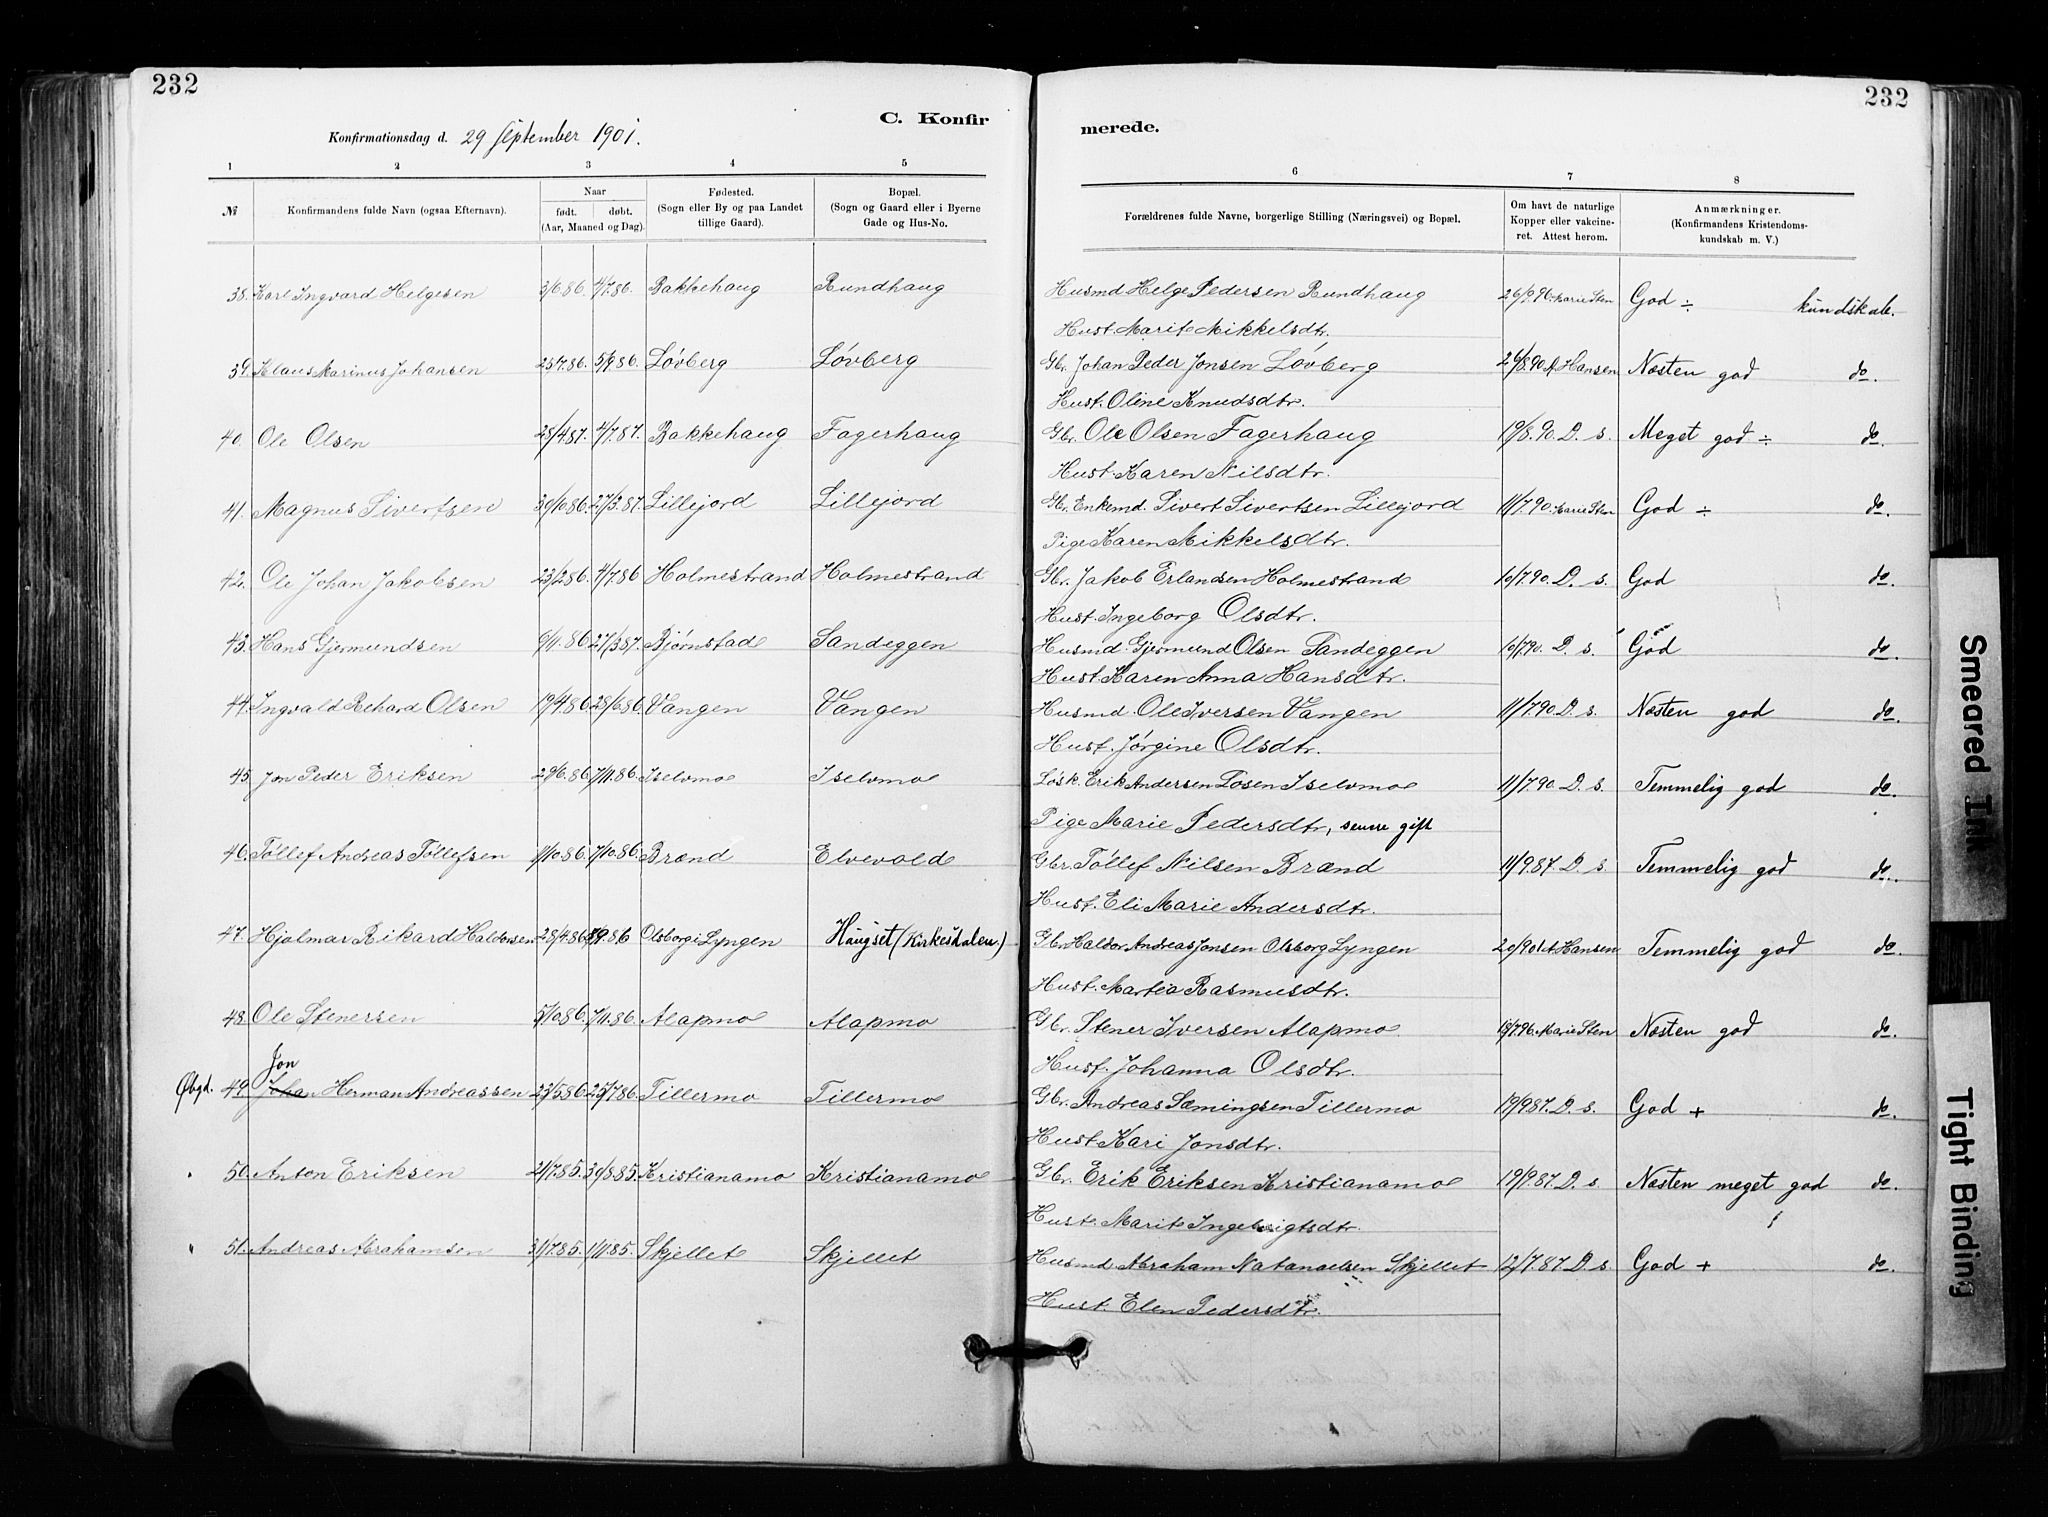 232
232
C. Konfir
merede.
Konfirmationsdag d. 29 September 1901.
1 2 3 4 5 6 7 8
№ Konfirmandens fulde Navn (ogsaa Efternavn). Naar født. døbt. (Aar, Maaned og Dag). Fødested. (Sogn eller By og paa Landet tillige Gaard). Bopæl. (Sogn og Gaard eller i Byerne Gade og Hus-No. Forældrenes fulde Navne, borgerlige Stilling (Næringsvei) og Bopæl. Om havt de naturlige Kopper eller vakcineret. Attest herom. Anmærkninger. (Konfirmandens Kristendomskundskab m. V.)
38. Karl Ingvard Helgesen 3/6.86. 4/7.86. Bakkehaug Rundhaug Husmd Helge Pedersen Rundhaug 26/9.90. Marie Sten God ÷ kundskab.
Hust. Marit Mikkelsdtr.
39. Klaus Marinus Johansen 25/7.86. 5/9.86. Løvberg Løvberg Gbr. Johan Peder Jonsen Løvberg 26/8.90 A Hansen Næsten god do.
Hust. Oline Knudsdtr.
40. Ole Olsen 28/4.87. 4/7.87. Bakkehaug Fagerhaug Gbr. Ole Olsen Fagerhaug 19/8.90. D. s. Meget god ÷ do.
Hust. Karen Nilsdtr.
41. Magnus Sivertsen 30/10.86. 27/3.87. Lillejord Lillejord Gbr. Enkemd. Sivert Sivertsen Lillejord 11/7.90. Marie Sten God ÷ do.
Pige Karen Mikkelsdtr.
42. Ole Johan Jakobsen 23/2.86. 4/7.86 Holmestrand Holmestrand Gbr. Jakob Erlandsen Holmestrand 10/7.90. D. s. God do.
Hust. Ingeborg Olsdtr.
43. Hans Gjermundsen 6/11.86 27/3.87. Bjørnstad Sandeggen Husmd Gjermund Olsen Sandeggen 10/7.90. D. s. God do.
Hust. Karen Anna Hansdtr.
44. Ingvald Rehard Olsen 19/4.86. 28/6.86. Vangen Vangen Husmd Ole Iversen Vangen 11/7.90. D. s. Næsten god do.
Hust. Jørgine Olsdtr.
45. Jon Peder Eriksen 29/6.86. 7/11.86. Iselvmo Iselvmo Løsk. Erik Andersen Løsen Iselvmo 11/7.90. D. s. Temmelig god do.
Pige Marie Pedersdtr, senere gift
46. Tøllef Andreas Tøllefsen 1/10.86. 7/10.86. Brænd Elvevold Gbr. Tøllef Nilsen Brænd 11/9.87. D. s. Temmelig god do.
Hust. Eli Marie Andersdtr.
47. Hjalmar Rikard Haldorsen 28/4.86 9.86 Olsborg i Lyngen Haugset (Kirkesdalen.) Gbr. Haldor Andreas Jonsen Olsborg Lyngen A Hansen Temmelig god do.
Hust. Martea Rasmusdtr.
48. Ole Stenersen 5/10.86. 7/11.86. Alapmo Alapmo Gbr. Stener Iversen Alapmo 18/7.96. Marie Sten Næsten god do.
Hust. Johanna Olsdtr.
Jon
Øbgd. 49. Johan Herman Andreassen 23/5.86. 25/7.86. Tillermo Tillermo Gbr. Andreas Sæmingsen Tillermo 19/9.87. D. s. God + do.
Hust. Kari Jonsdtr.
" 50. Anton Eriksen 21/7.85. 30/8.85. Kristianamo Kristianamo Gbr. Erik Eriksen Kristianamo 19/9.87. D. s. Næsten meget god do.
Hust. Marit Ingebrigtsdtr.
" 51. Andreas Abrahamsen 31/7.85. 1/11.85. Skjellet Skjellet Husmd Abraham Natanaelsen Skjellet 12/7.87 D. s. God + do.
Hust. Elen Pedersdtr.
Smeared Ink
Tight Binding